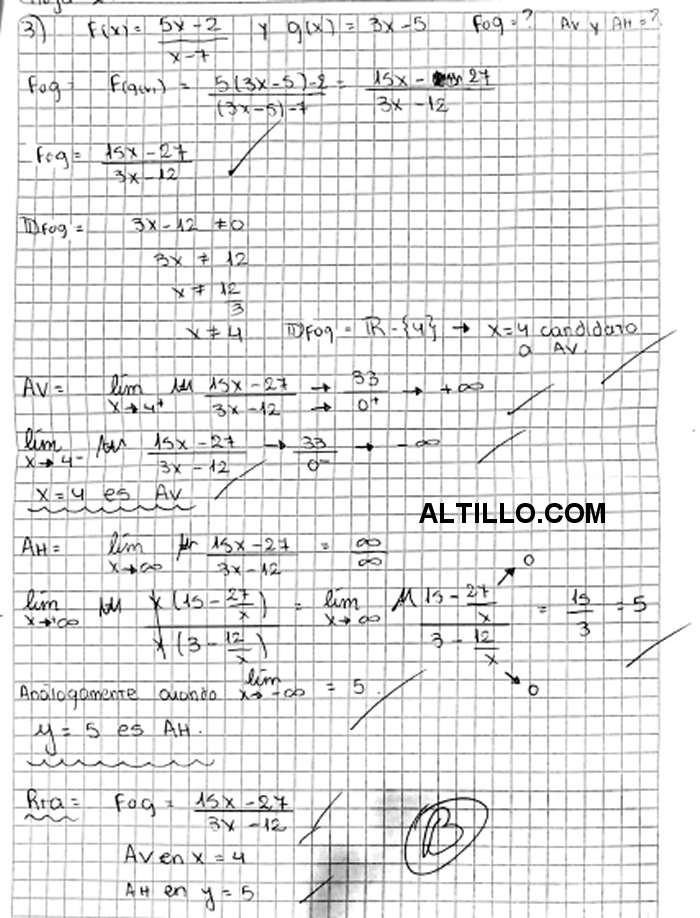 3) F(x) = 5x-2 / x-7 y g(x) = 3x-5 Fog = ? AV y AH = ?
Fog = F(g(x)) = 5(3x-5)-2 / (3x-5)-7 = 15x - 27 / 3x-12
Fog = 15x-27 / 3x-12
Dfog = 3x-12 ≠ 0
3x ≠ 12
x ≠ 12/3
x ≠ 4 Dfog = R - {4} → x=4 candidato
a AV.
AV = lím x→4⁺ 15x-27 / 3x-12 → 33 / 0⁺ → +∞
lím x→4⁻ 15x-27 / 3x-12 → 33 / 0⁻ → -∞
x = 4 es AV
ALTILLO.COM
AH = lím x→∞ 15x-27 / 3x-12 = ∞/∞
lím x→+∞ x(15 - 27/x) / x(3 - 12/x) = lím x→∞ 15 - 27/x → 0 / 3 - 12/x → 0 = 15/3 = 5
Análogamente cuando lím x→-∞ = 5.
y = 5 es AH.
Rta = Fog = 15x-27 / 3x-12
B
AV en x = 4
AH en y = 5